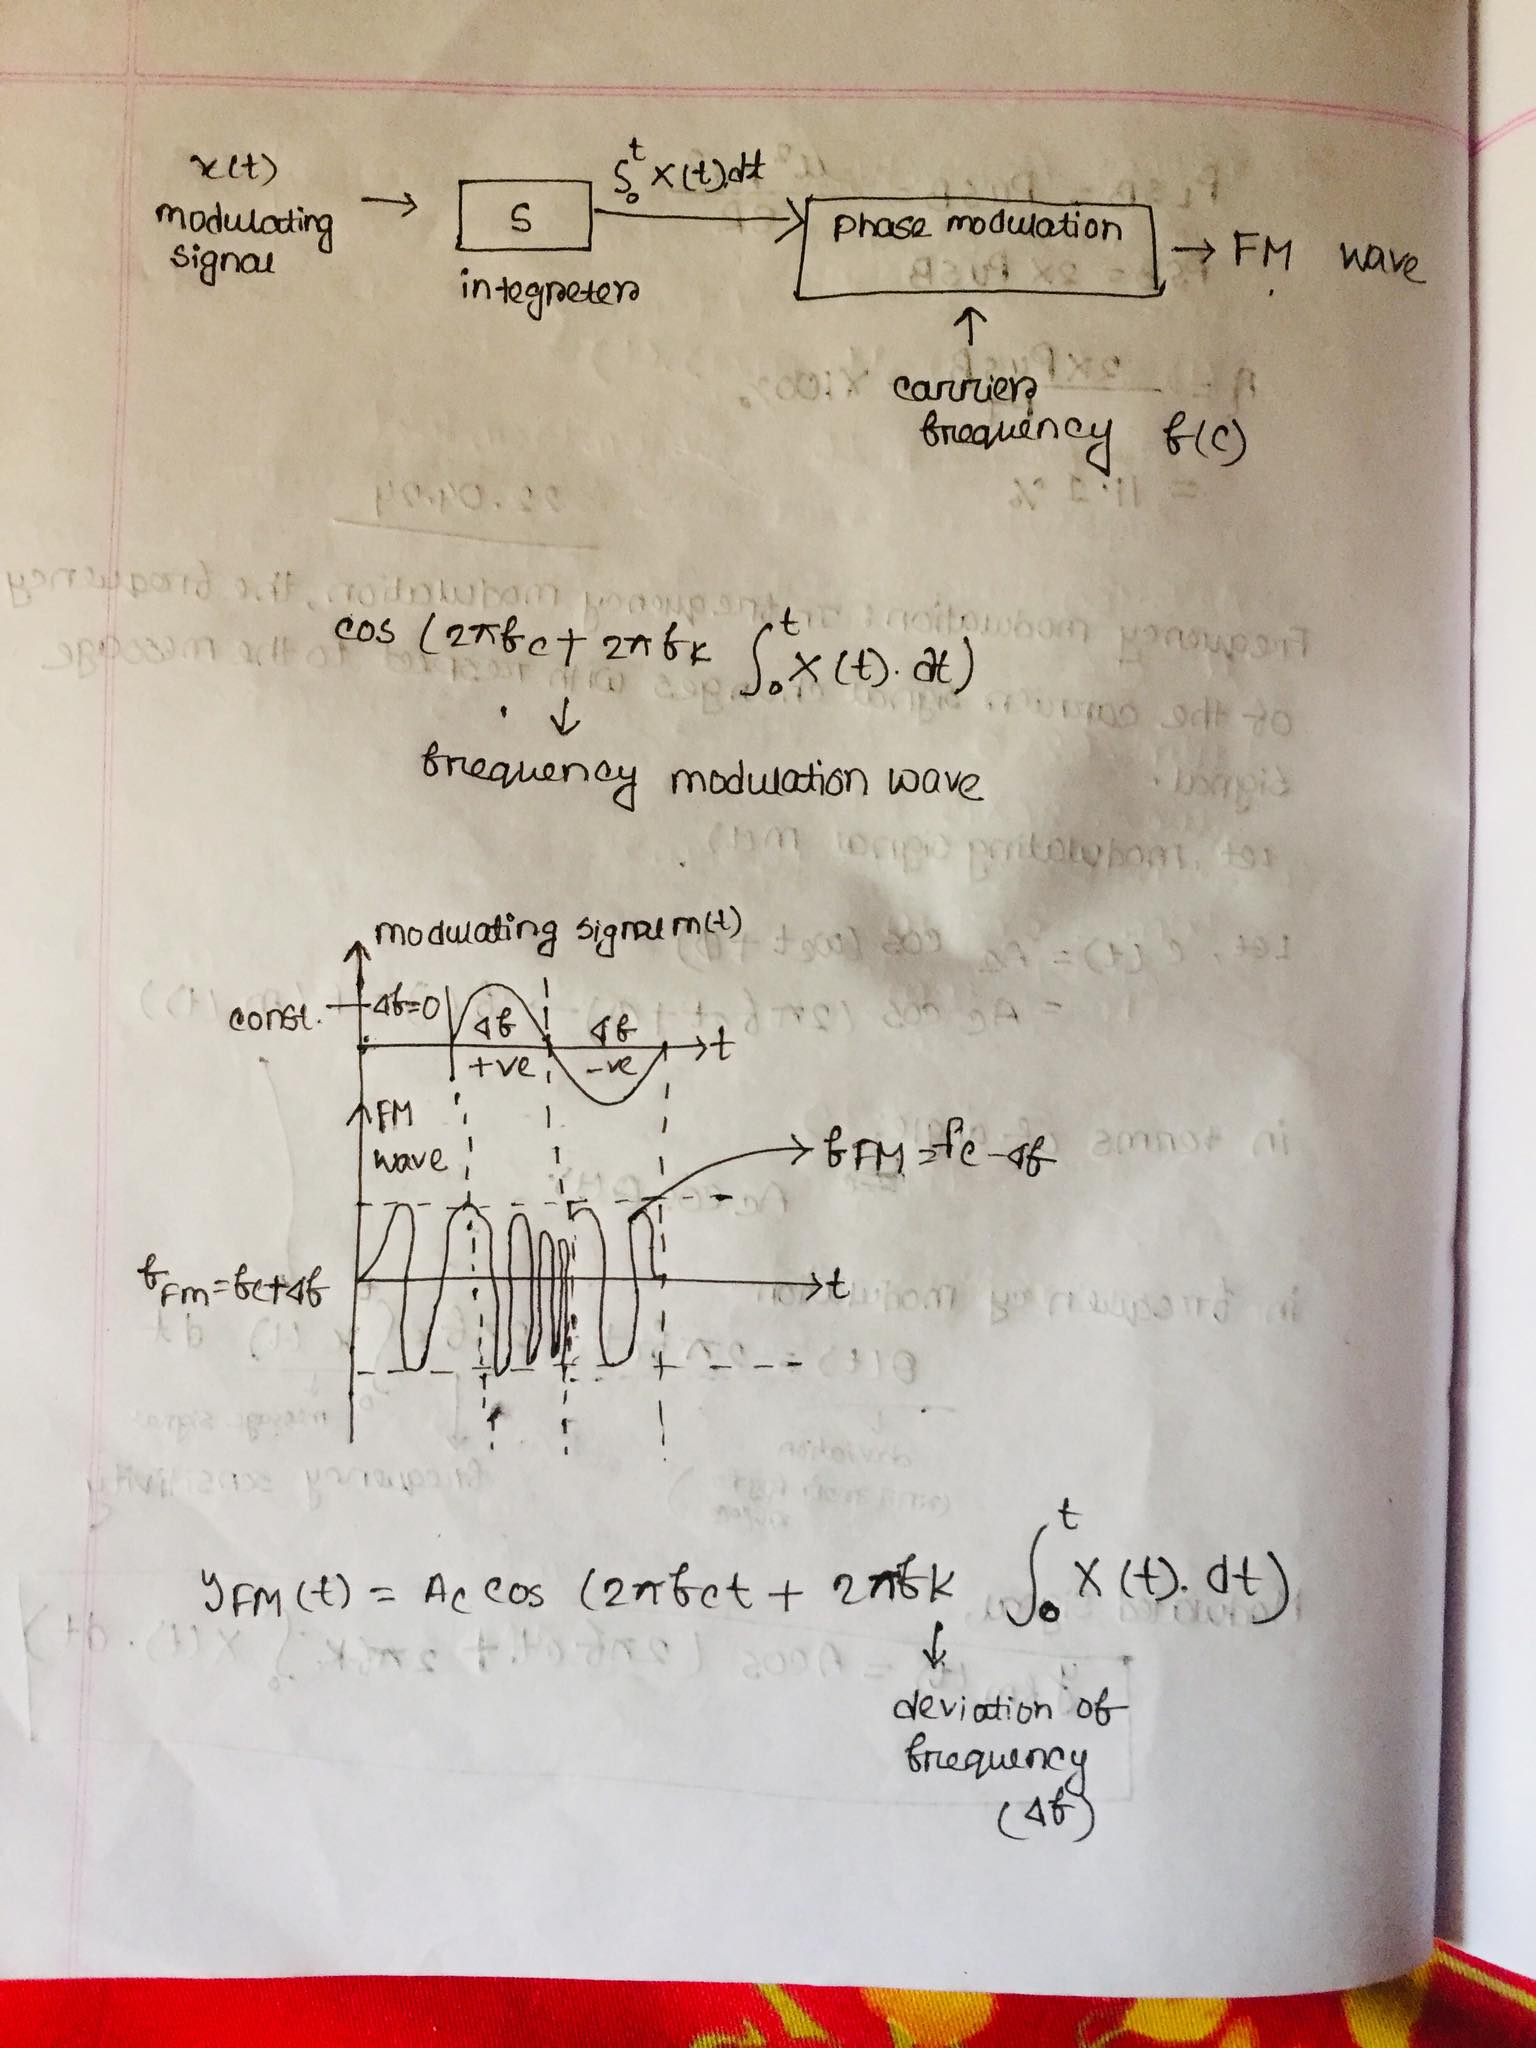 x(t)
modulating
signal
→
S
integreter
∫₀ᵗ x(t).dt
phase modulation
→ FM wave
↑
carrier
frequency f(c)
cos (2πfc + 2πfk ∫₀ᵗ x(t). dt)
↓
frequency modulation wave
modulating signal m(t)
const.
Δf=0
Δf
+ve
Δf
-ve
t
FM
wave
fFM = fc - Δf
fFM = fc + Δf
t
yFM(t) = Ac cos (2πfct + 2πfk ∫₀ᵗ x(t). dt)
↓
deviation of
frequency
(Δf)